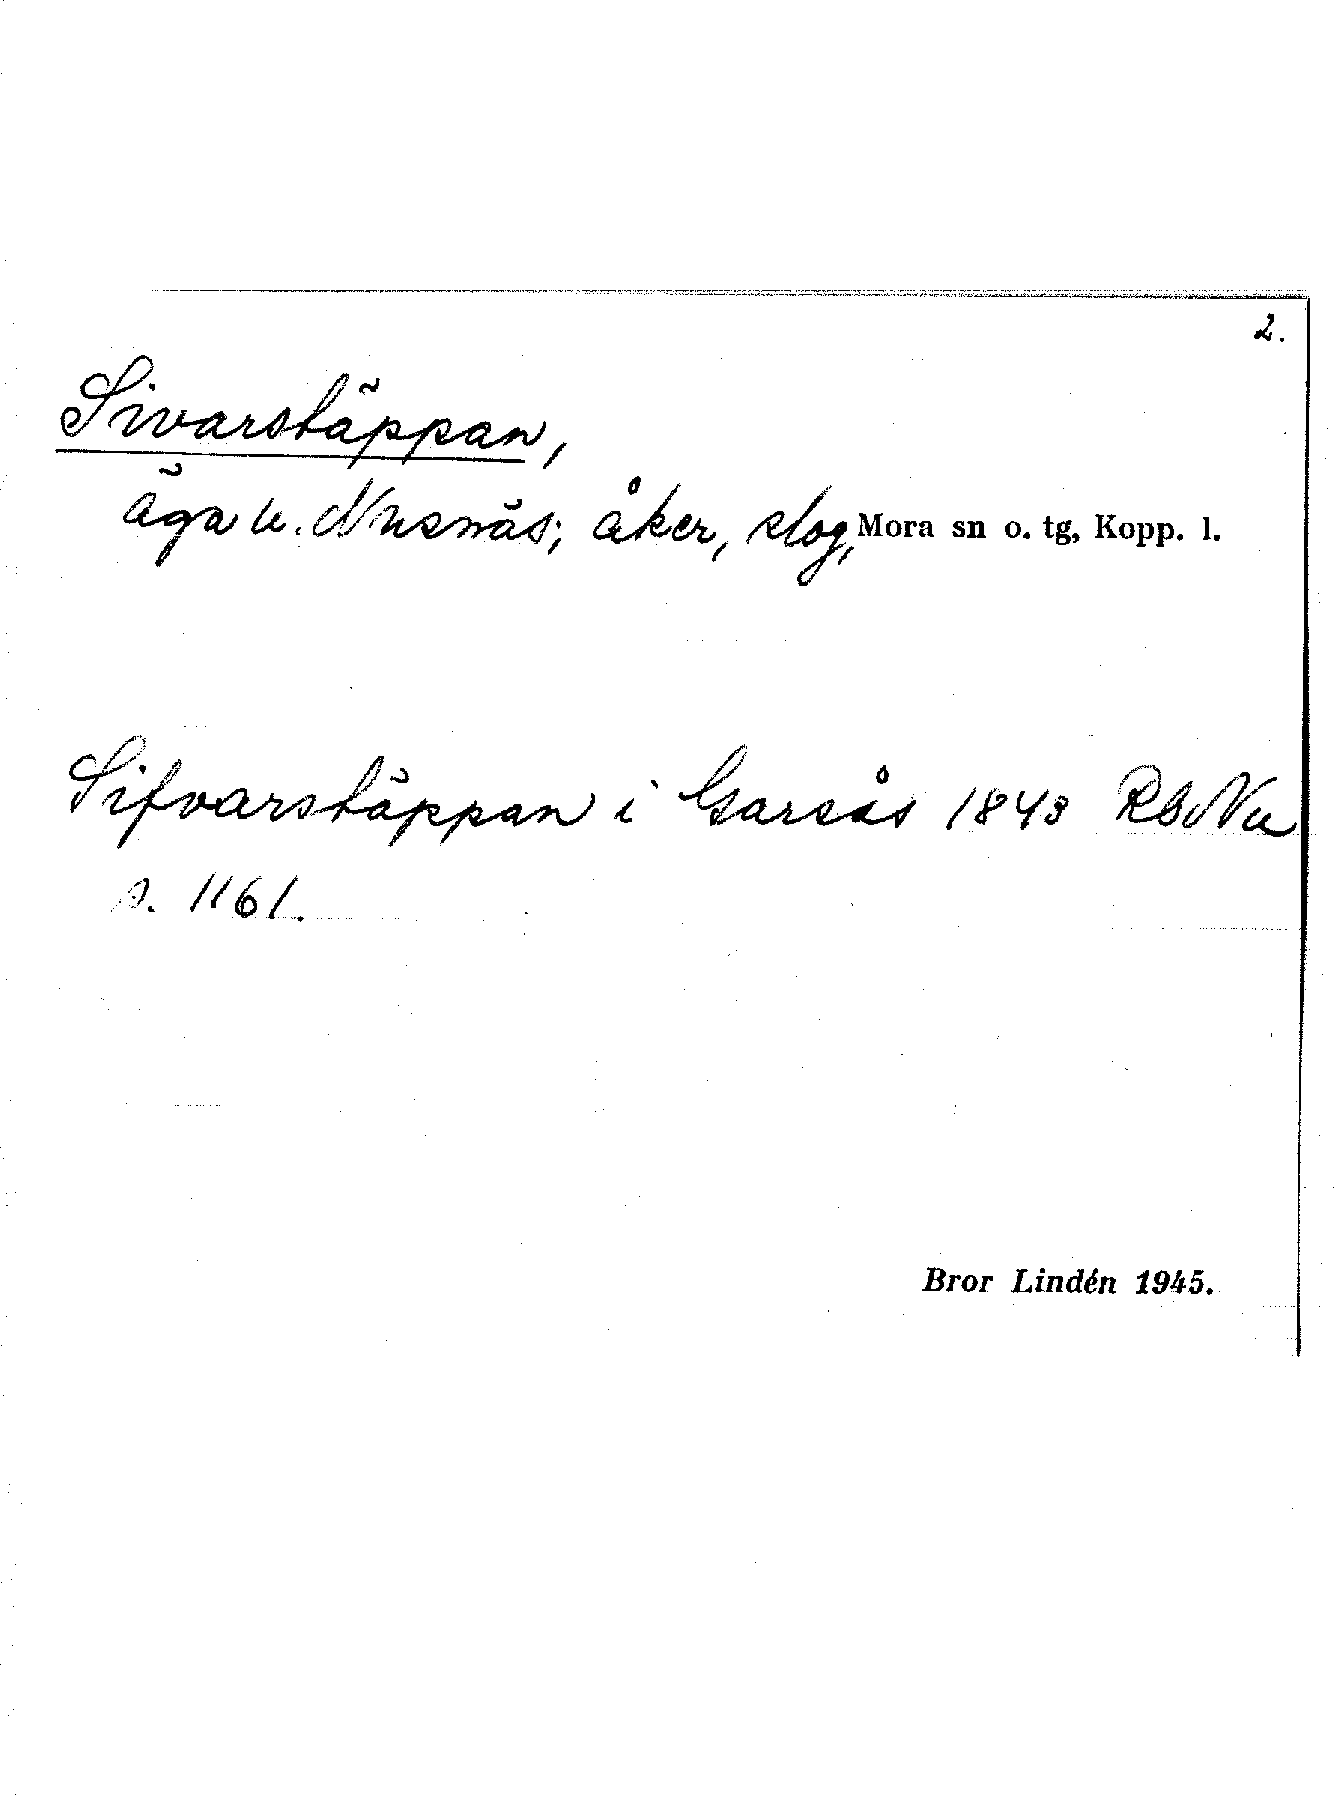 2.
Sivarstäppan,
äga u. Nusnäs; åker, slog, Mora sn o. tg, Kopp. l.
Sifvarstäppan i Garsås 1843 RbNu
s. 1161.
Bror Lindén 1945.